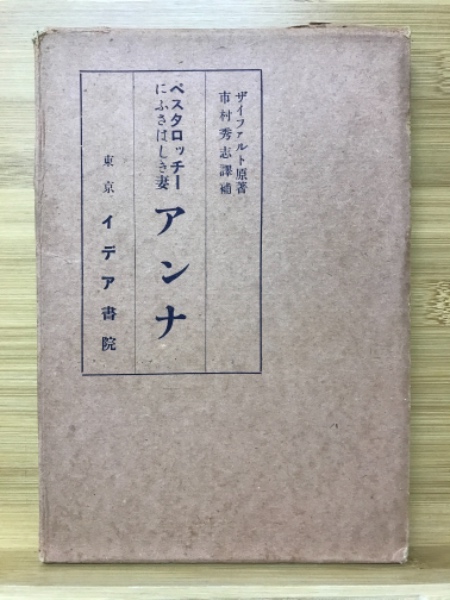 ザイファルト原著
市村秀志譯補
ペスタロッチー
にふさはしき妻
アンナ
東京 イデア書院